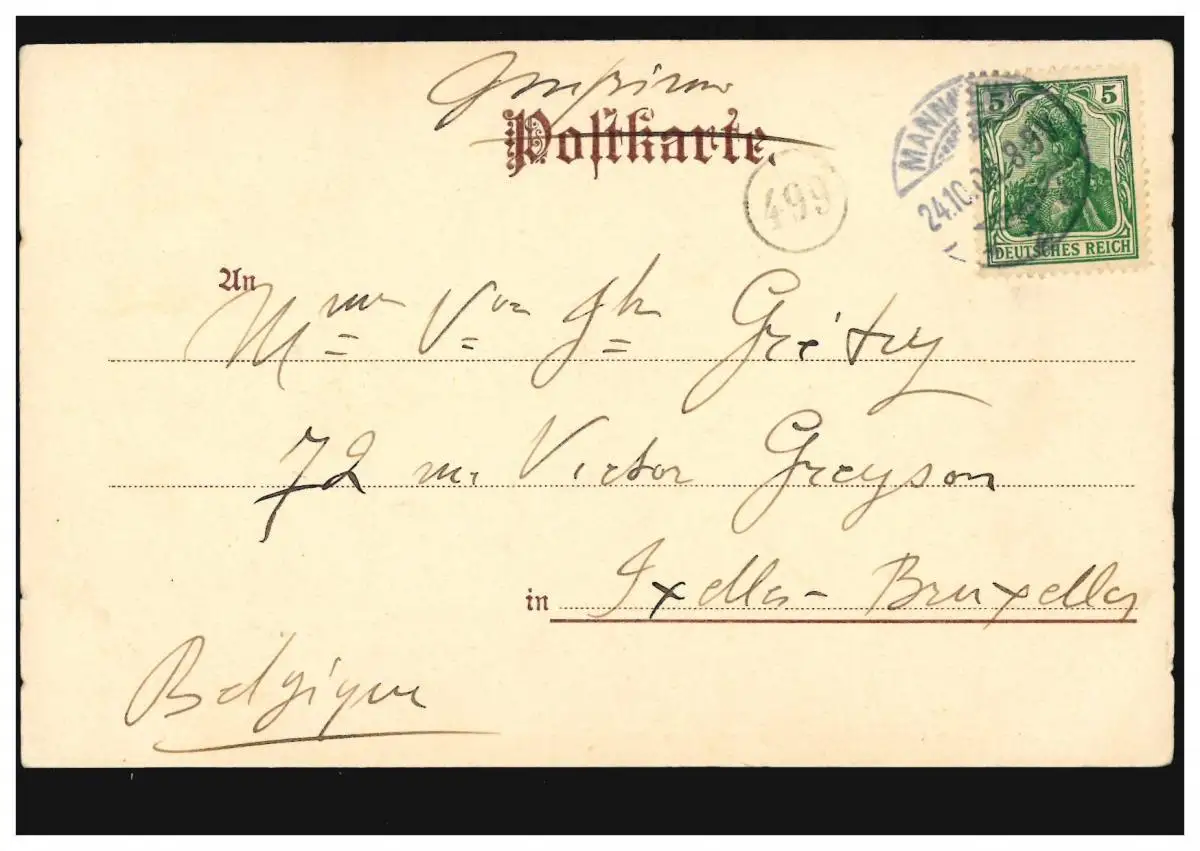 Imprimé
Postkarte.
5 5
DEUTSCHES REICH
MANNHEIM
24.10. 8-9N
499
An
Mme Vve Jh Grétry
72 rue Victor Greyson
in Ixelles-Bruxelles
Belgique